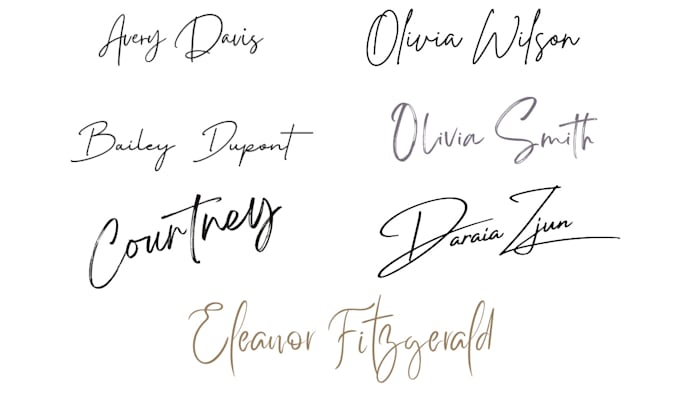 Avery Davis
Olivia Wilson
Bailey Dupont
Olivia Smith
Courtney
Daraia Zjun
Eleanor Fitzgerald